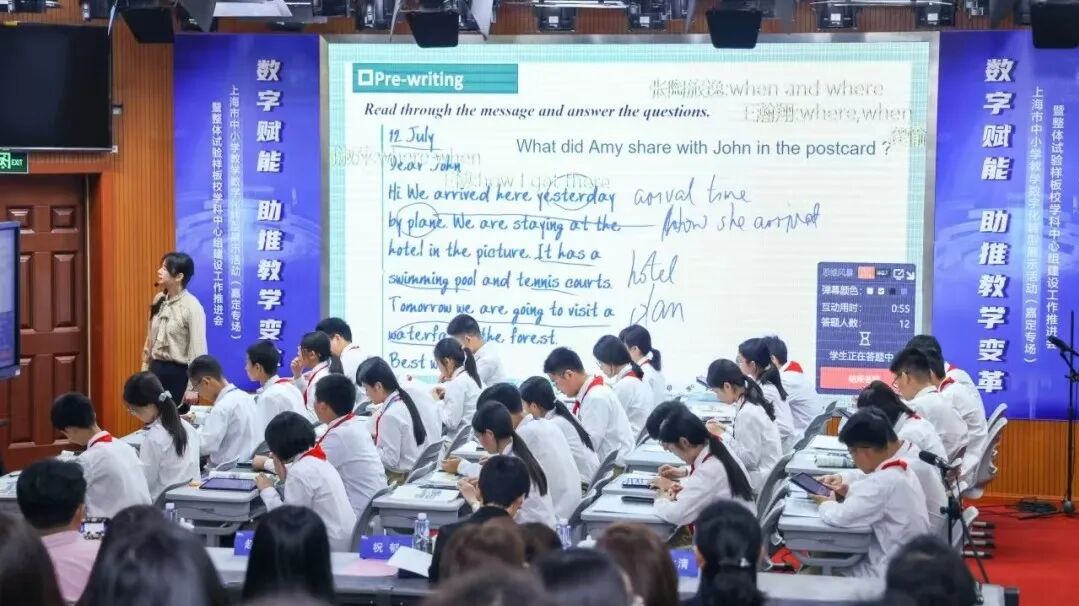 EXIT
数字赋能 助推教学变
上海市中小学教学数字化转型展示活动（嘉定专场）
暨整体试验样板校学科中心组建设工作推进会
Pre-writing
Read through the message and answer the questions.
What did Amy share with John in the postcard ?
张陶旅逸:when and where
王瀚翔:where,when
where,when
how I got there
12 July
Dear John
Hi We arrived here yesterday
by plane. We are staying at the
hotel in the picture. It has a
swimming pool and tennis courts.
Tomorrow we are going to visit a
waterfa the forest.
Best w
arrival time
how she arrived
hotel
plan
思维风暴
弹幕颜色：
互动用时： 0:55
答题人数： 12
学生正在答题中
数字赋能 助推教学变革
上海市中小学教学数字化转型展示活动（嘉定专场）
暨整体试验样板校学科中心组建设工作推进会
祝郁
清